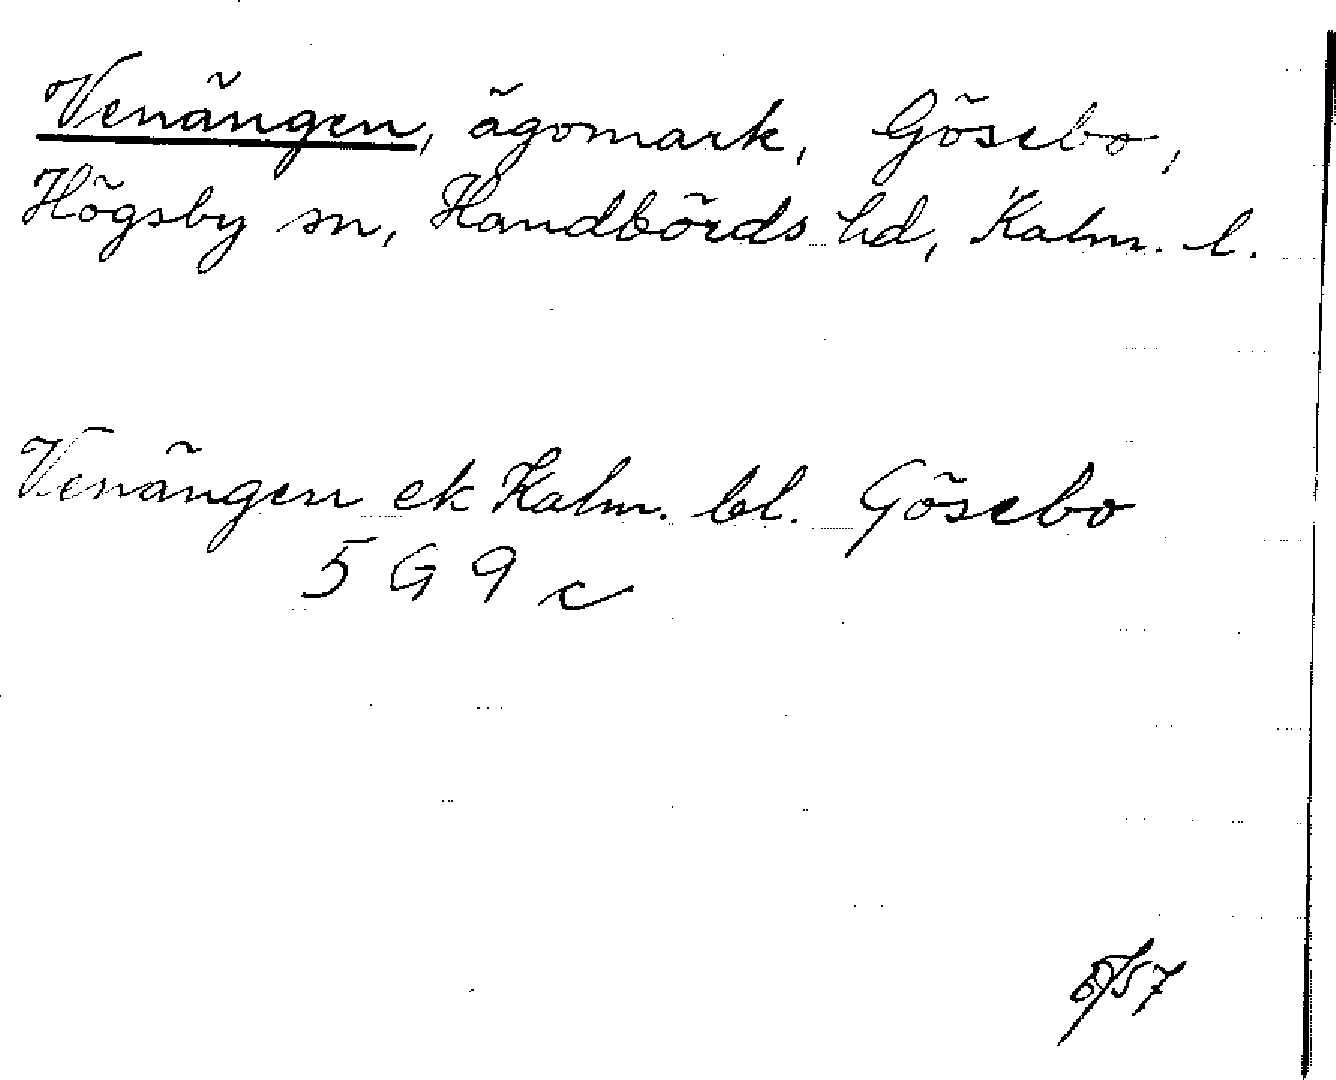 Venängen, ägomark, Gösebo,
Högsby sn, Handbörds hd, Kalm. l.
Venängen ek Kalm. bl. Gösebo
5 G 9 c